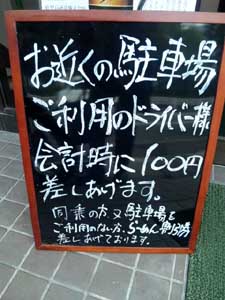 お近くの駐車場
ご利用のドライバー様
会計時に100円
差しあげます。
同乗の方又駐車場を
ご利用のない方、らーめん
差しあげております。